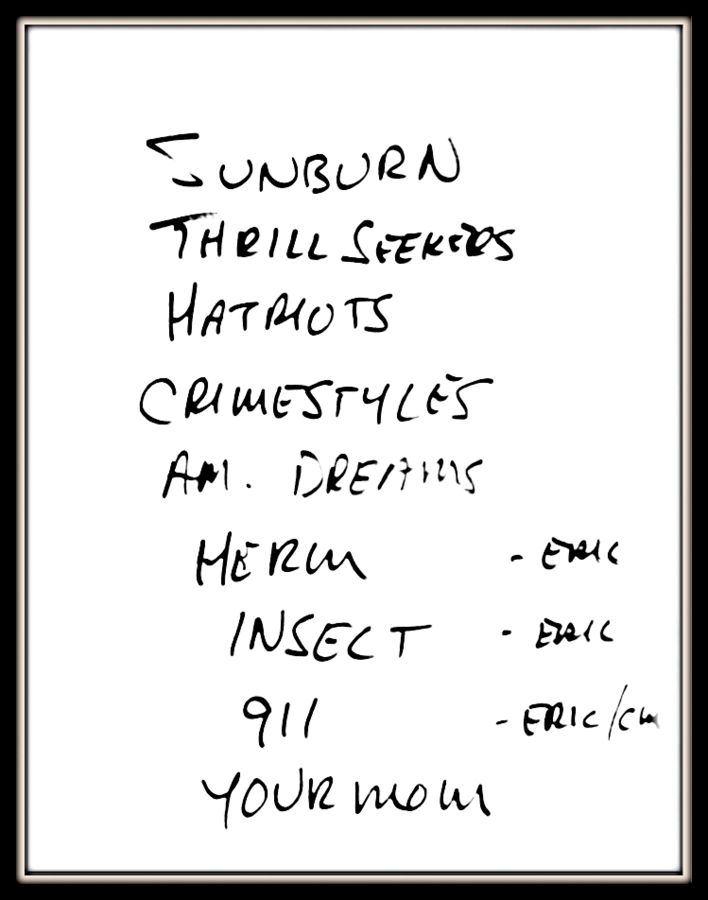 SUNBURN
THRILL SEEKERS
HATRIOTS
CRIMESTYLES
AM. DREAMS
HERM - ERIC
INSECT - ERIC
911 - ERIC/CM
YOUR MOM